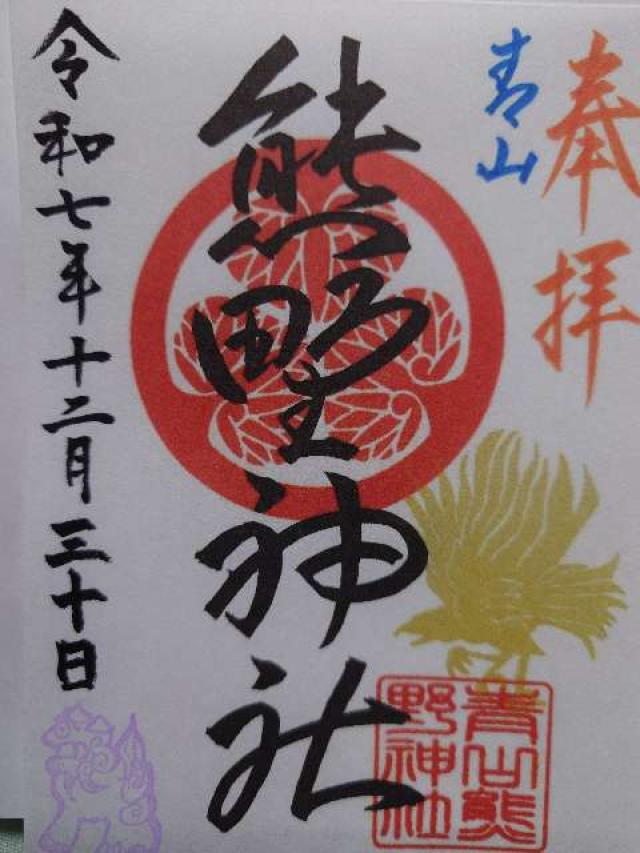 奉拝
青山
熊野神社
令和七年十二月三十日
青山熊
野神社